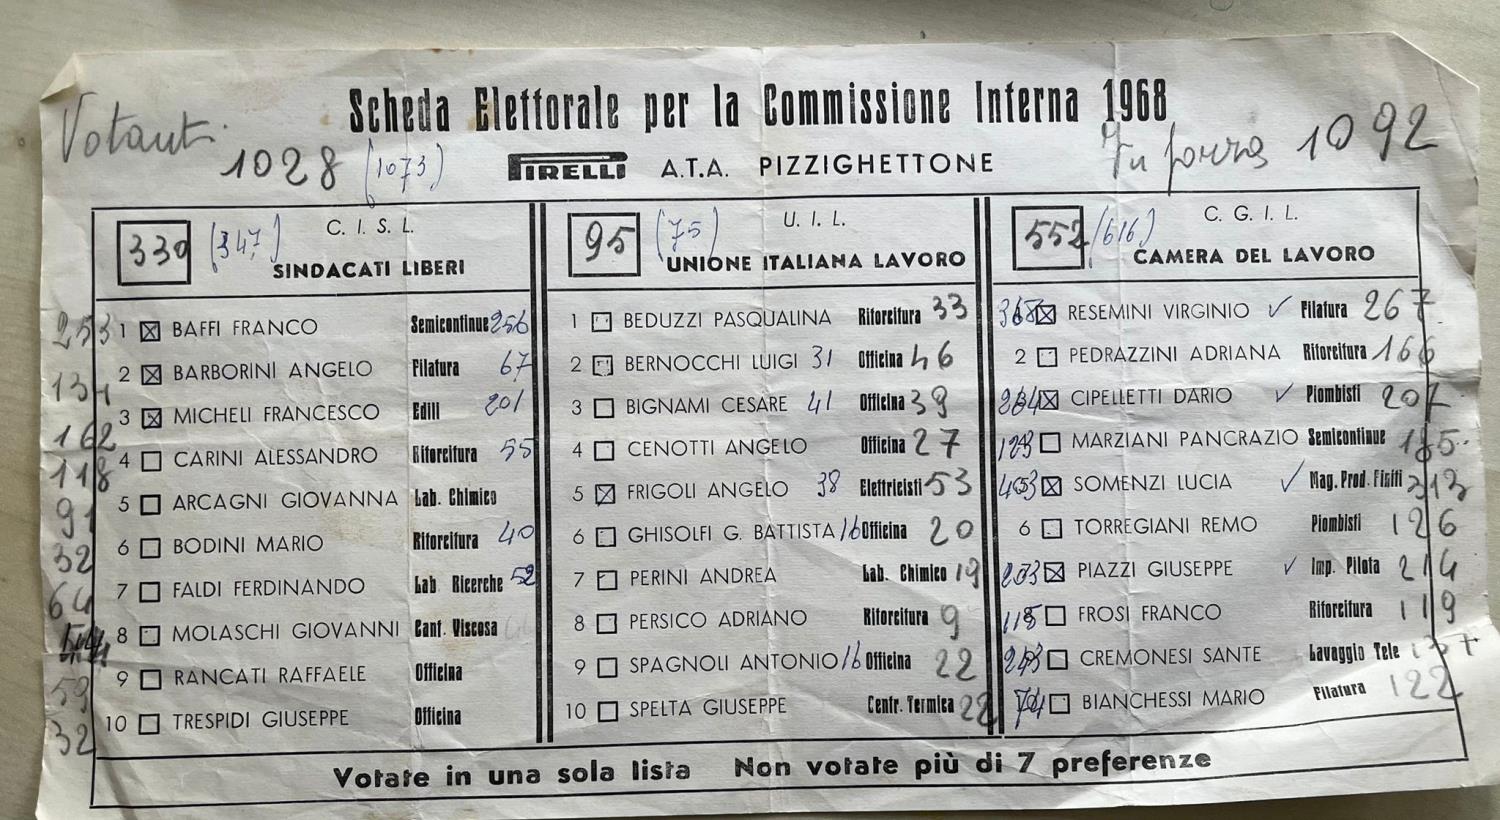 Scheda Elettorale per la Commissione Interna 1968
Votanti 1028 (1073)
PIRELLI A.T.A. PIZZIGHETTONE
In forza 1092
330 (347) C. I. S. L.
SINDACATI LIBERI
253 1 BAFFI FRANCO Semicontinue 256
134 2 BARBORINI ANGELO Filatura 67
162 3 MICHELI FRANCESCO Edili 201
118 4 CARINI ALESSANDRO Ritorcitura 55
91 5 ARCAGNI GIOVANNA Lab. Chimico
32 6 BODINI MARIO Ritorcitura 40
64 7 FALDI FERDINANDO Lab Ricerche 52
8 MOLASCHI GIOVANNI Cant. Viscosa
59 9 RANCATI RAFFAELE Officina
32 10 TRESPIDI GIUSEPPE Officina
95 (75) U. I. L.
UNIONE ITALIANA LAVORO
1 BEDUZZI PASQUALINA Ritorcitura 33
2 BERNOCCHI LUIGI 31 Officina 46
3 BIGNAMI CESARE 41 Officina 39
4 CENOTTI ANGELO Officina 27
5 FRIGOLI ANGELO 38 Elettricisti 53
6 GHISOLFI G. BATTISTA 16 Officina 20
7 PERINI ANDREA Lab. Chimico 19
8 PERSICO ADRIANO Ritorcitura 9
9 SPAGNOLI ANTONIO 16 Officina 22
10 SPELTA GIUSEPPE Centr. Termica 22
552 (616) C. G. I. L.
CAMERA DEL LAVORO
368 RESEMINI VIRGINIO ✓ Filatura 267
2 PEDRAZZINI ADRIANA Ritorcitura 166
CIPELLETTI DARIO ✓ Piombisti 207
123 MARZIANI PANCRAZIO Semicontinue
453 SOMENZI LUCIA ✓ Mag. Prod. Finiti 313
6 TORREGIANI REMO Piombisti 126
PIAZZI GIUSEPPE ✓ Imp. Pilota 214
118 FROSI FRANCO Ritorcitura 119
CREMONESI SANTE Lavaggio Tele
74 BIANCHESSI MARIO Filatura 122
Votate in una sola lista Non votate più di 7 preferenze